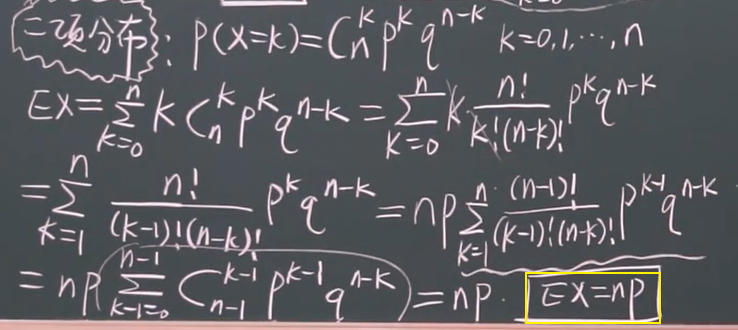 二项分布: P(X=k)=C_n^k p^k q^{n-k} k=0,1,⋯,n
EX=∑_{k=0}^{n} k C_n^k p^k q^{n-k} = ∑_{k=0}^{n} k \frac{n!}{k!(n-k)!} p^k q^{n-k}
=∑_{k=1}^{n} \frac{n!}{(k-1)!(n-k)!} p^k q^{n-k} = np ∑_{k=1}^{n} \frac{(n-1)!}{(k-1)!(n-k)!} p^{k-1} q^{n-k}
= np ∑_{k-1=0}^{n-1} C_{n-1}^{k-1} p^{k-1} q^{n-k} = np. EX=np